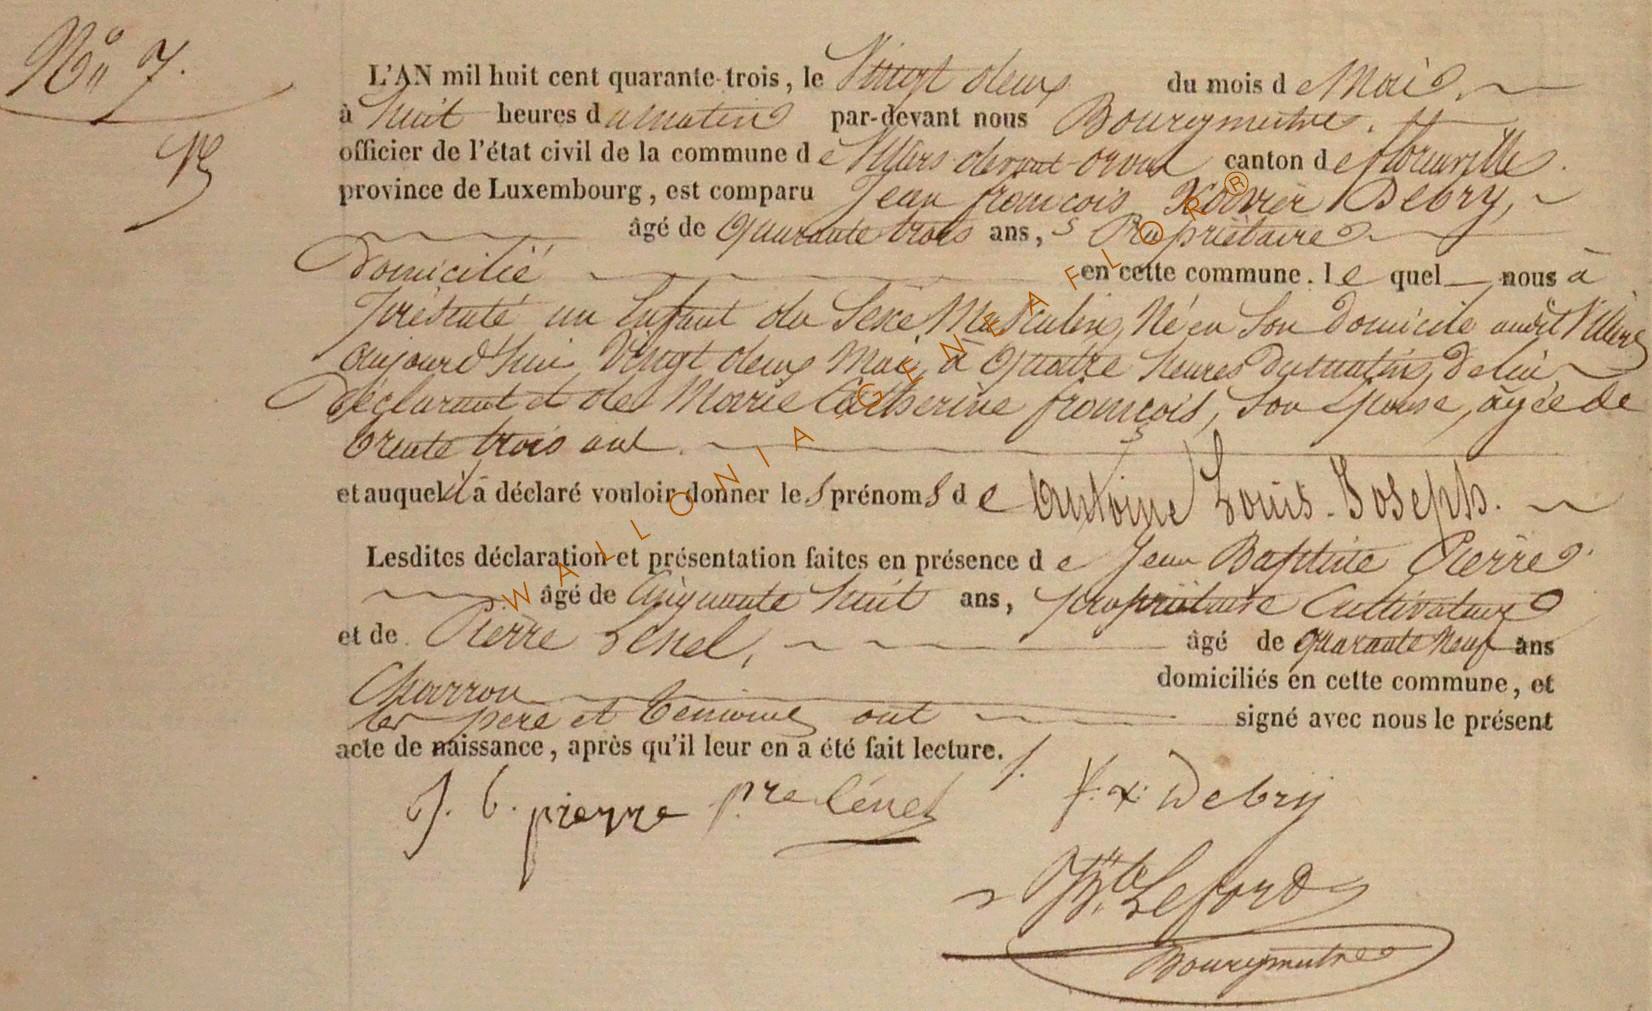 No 7.
L'AN mil huit cent quarante-trois, le Vingt deux du mois de Mai
à huit heures du matin par-devant nous Bourgmestre.
officier de l'état civil de la commune de Villers-devant-orval canton de florenville.
province de Luxembourg, est comparu Jean françois Xavier Debry,
âgé de Quarante trois ans, Propriétaire
Domicilié en cette commune. le quel nous à
présenté un Enfant du Sexe Masculin, Né en Son Domicile audit Villers
aujourd'hui Vingt deux Mai, à Quatre heures du matin, de lui
Déclarant et de Marie Catherine françois, Son Epouse, agée de
trente trois ans.
et auquel il à déclaré vouloir donner les prénoms de Antoine Louis-Joseph.
Lesdites déclaration et présentation faites en présence de Jean Baptiste Pierre
âgé de Cinquante huit ans, propriétaire Cultivateur
et de Pierre Lenel, âgé de quarante neuf ans
Charron domiciliés en cette commune, et
les père et temoins ont signé avec nous le présent
acte de naissance, après qu'il leur en a été fait lecture.
J. b. pierre pre lénel f. x. Debry
Leford
Bourgmestre
WALLONIA GENEAFLOR®